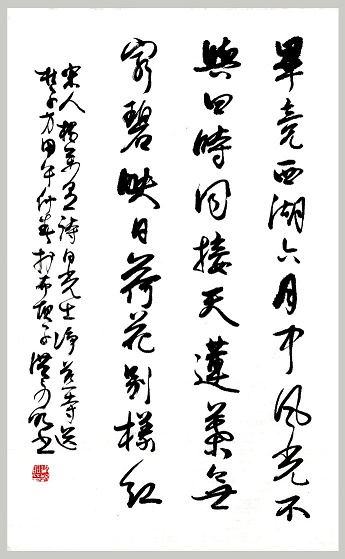 畢竟西湖六月中風光不
與四時同接天蓮葉無
窮碧映日荷花別樣紅
宋人楊萬里詩曉出淨慈寺送
林子方甲午仲春於